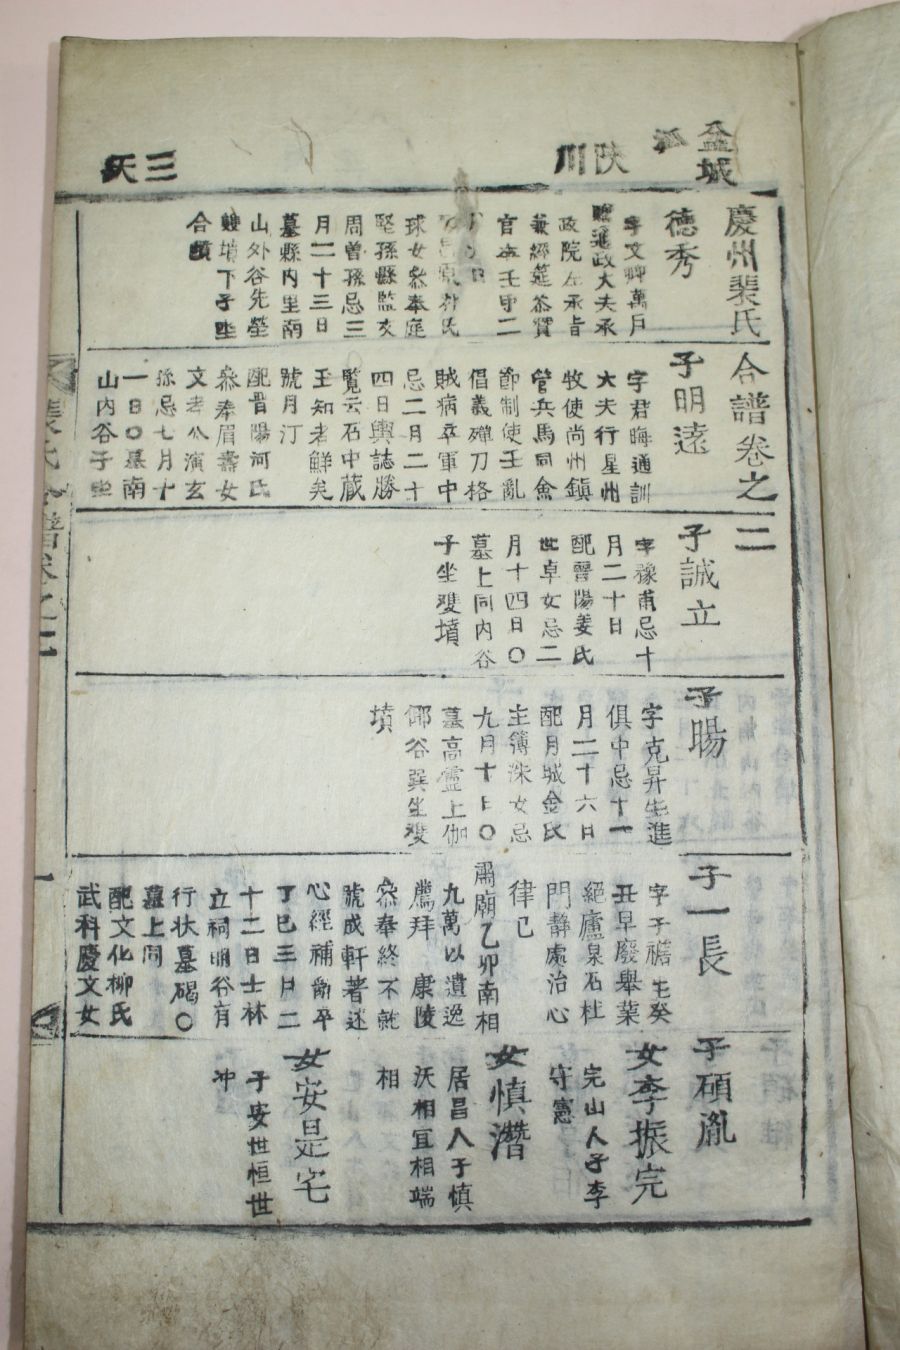 盆城
派
陜川
三
天
慶州裴氏合譜卷之二
德秀
字文卿萬戶
贈通政大夫承
政院左承旨
兼經筵參贊
官卒壬申二
氏
球女參奉庭
堅孫縣監友
周曾孫忌三
月二十三日
墓縣內里南
山外谷先塋
雙墳下子坐
合墳
子明遠
字君晦通訓
大夫行星州
牧使尚州鎮
管兵馬同僉
節制使壬亂
倡義殫刀格
賊病卒軍中
忌二月二十
四日輿誌勝
覽云石中藏
玉知者鮮矣
號月汀
配晉陽河氏
參奉眉壽女
文孝公演玄
孫忌七月十
一日〇墓南
山內谷子坐
子誠立
字豫甫忌十
月二十日
配晉陽姜氏
世卓女忌二
月十四日〇
墓上同內谷
子坐雙墳
子暘
字克昇生進
俱中忌十一
月二十六日
配月城金氏
主簿洙女忌
九月十日〇
墓高靈上伽
倻谷巽坐雙
墳
子一長
字子瞻生癸
丑早廢舉業
絕廬泉石杜
門靜處治心
律己
肅廟乙卯南相
九萬以遺逸
薦拜 康陵
參奉終不就
號成軒著述
心經補 卒
丁巳三月二
十二日士林
立祠明谷有
行狀墓碣〇
墓上同
配文化柳氏
武科慶文女
子碩胤
女李振完
完山人子李
守憲
女慎潛
居昌人子慎
沃相宜相端
相
女安是宅
子安世恒世
冲
裴氏合譜卷之二
一